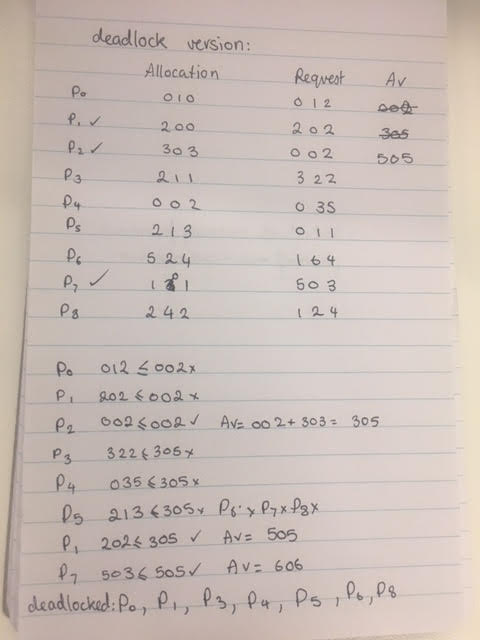 deadlock version:
Allocation Request Av
P0 010 012 002
P1 ✓ 200 202 305
P2 ✓ 303 002 505
P3 211 322
P4 002 035
P5 213 011
P6 524 164
P7 ✓ 101 503
P8 242 124
P0 012 ≤ 002 x
P1 202 ≤ 002 x
P2 002 ≤ 002 ✓ Av = 002 + 303 = 305
P3 322 ≤ 305 x
P4 035 ≤ 305 x
P5 213 ≤ 305 x P6 x P7 x P8 x
P1 202 ≤ 305 ✓ Av = 505
P7 503 ≤ 505 ✓ Av = 606
deadlocked: P0, P1, P3, P4, P5, P6, P8